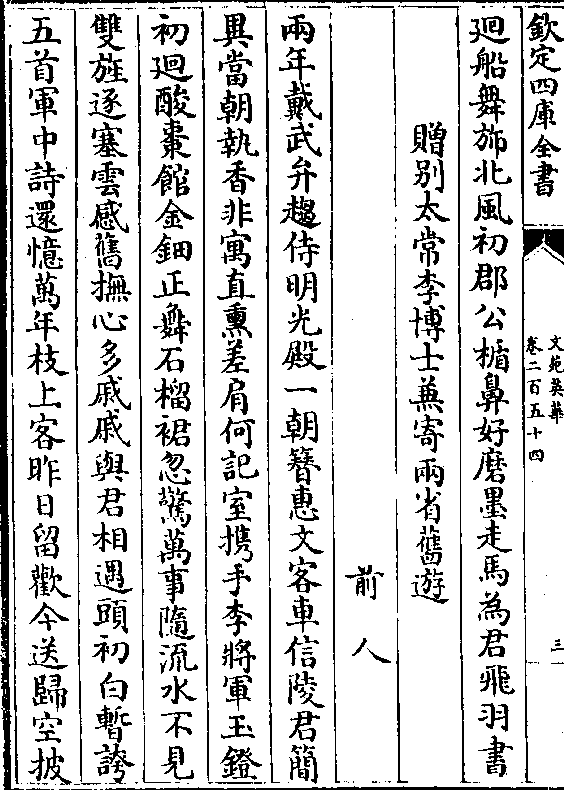 欽定四庫全書
文苑英華
卷二百五十四
三
廻船舞斾北風初郡公楯鼻好磨墨走馬為君飛羽書
贈别太常李博士兼寄兩省舊遊
前人
兩年戴武弁趨侍明光殿一朝簪惠文客車信陵君簡
異當朝執香非寓直熏差肩何記室攜手李將軍玉鐙
初廻酸棗館金鈿正舞石榴裙忽驚萬事隨流水不見
雙旌逐塞雲感舊撫心多戚戚與君相遇頭初白暫誇
五首軍中詩還憶萬年枝上客昨日留歡今送歸空披